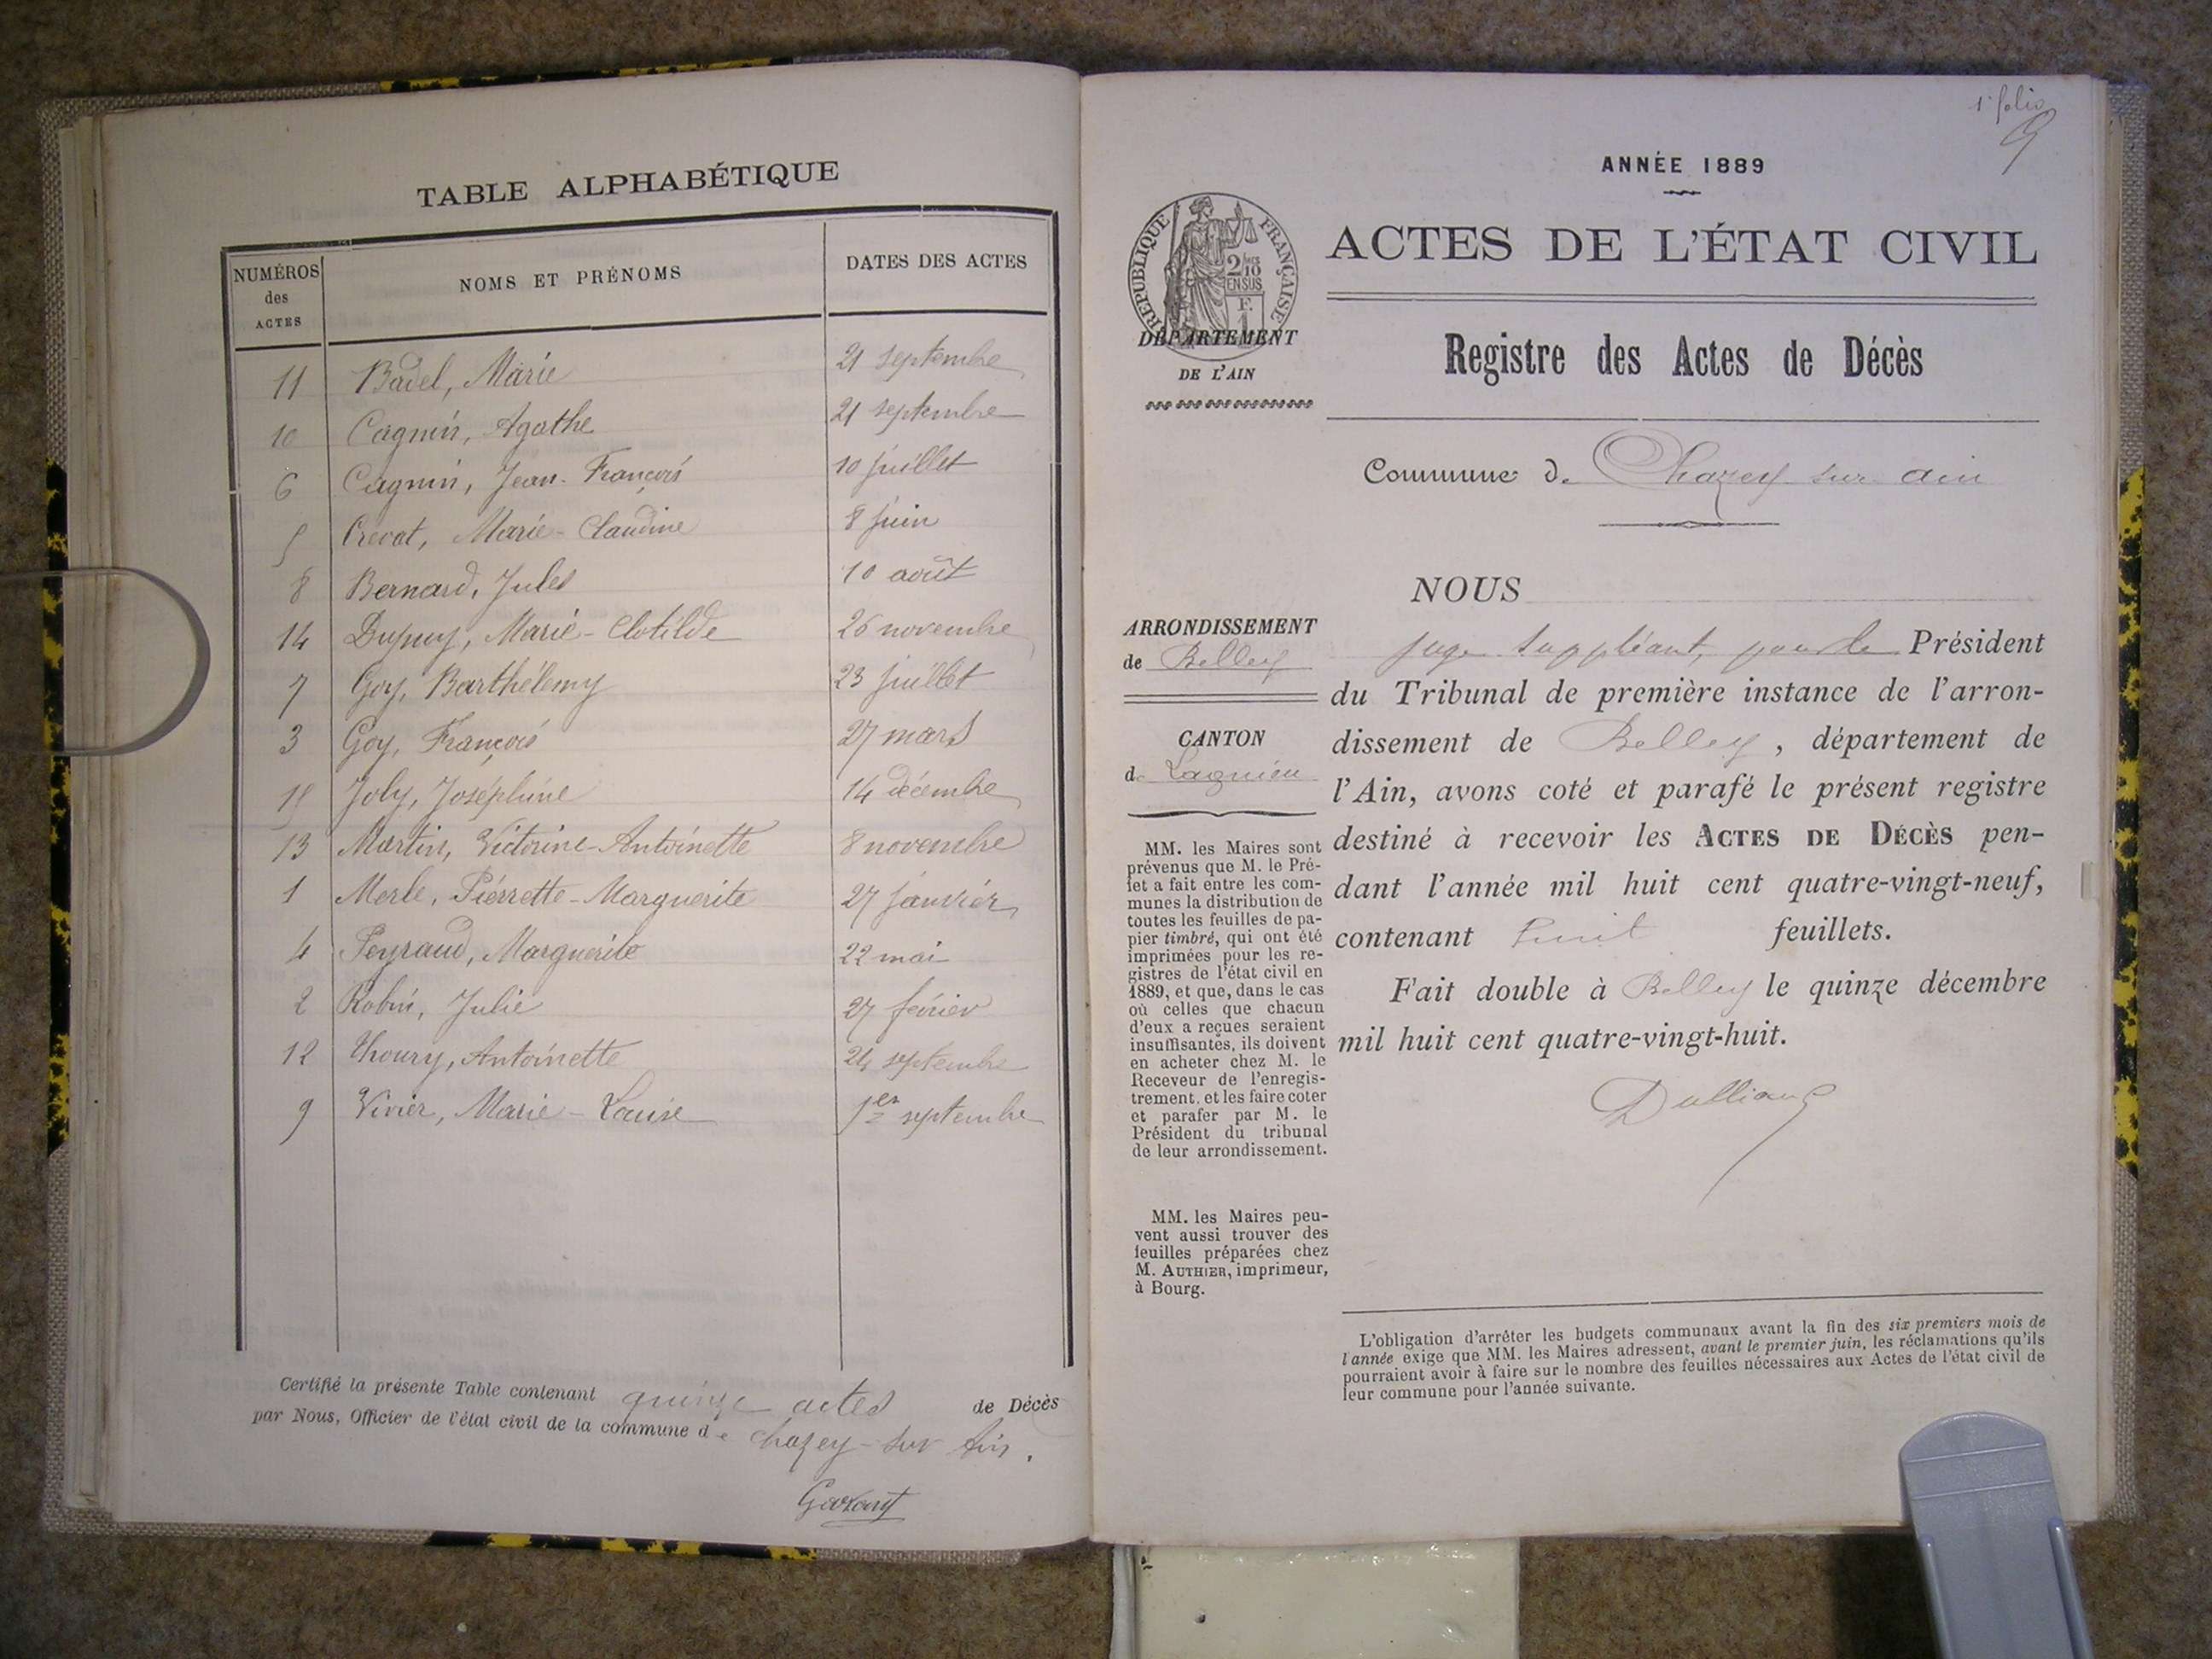 TABLE ALPHABÉTIQUE
NUMÉROS des ACTES NOMS ET PRÉNOMS DATES DES ACTES
11 Badel, Marie 21 septembre
10 Cagnin, Agathe 21 septembre
6 Cagnin, Jean-François 10 juillet
5 Crevat, Marie-Claudine 8 juin
8 Bernard, Jules 10 août
14 Dupuy, Marie-Clotilde 26 novembre
7 Goy, Barthélemy 23 juillet
3 Goy, François 27 mars
15 Joly, Joséphine 14 décembre
13 Martin, Victorine-Antoinette 8 novembre
1 Merle, Pierrette-Marguerite 27 janvier
4 Peyraud, Marguerite 22 mai
2 Robin, Julie 27 février
12 Thoury, Antoinette 24 septembre
9 Vivier, Marie-Louise 1er septembre
Certifié la présente Table contenant quinze actes de Décès
par Nous, Officier de l'état civil de la commune de Chazey-sur Ain.
1er folio
ANNÉE 1889
RÉPUBLIQUE FRANÇAISE
2/10
EN SUS
F.
1
ACTES DE L'ÉTAT CIVIL
DÉPARTEMENT
DE L'AIN
Registre des Actes de Décès
Commune de Chazey sur ain
ARRONDISSEMENT
de Belley
CANTON
de Lagnieu
MM. les Maires sont
prévenus que M. le Pré-
fet a fait entre les com-
munes la distribution de
toutes les feuilles de pa-
pier timbré, qui ont été
imprimées pour les re-
gistres de l'état civil en
1889, et que, dans le cas
où celles que chacun
d'eux a reçues seraient
insuffisantes, ils doivent
en acheter chez M. le
Receveur de l'enregis-
trement, et les faire coter
et parafer par M. le
Président du tribunal
de leur arrondissement.
MM. les Maires peu-
vent aussi trouver des
feuilles préparées chez
M. AUTHIER, imprimeur,
à Bourg.
NOUS
juge suppléant, pour le Président
du Tribunal de première instance de l'arron-
dissement de Belley, département de
l'Ain, avons coté et parafé le présent registre
destiné à recevoir les ACTES DE DÉCÈS pen-
dant l'année mil huit cent quatre-vingt-neuf,
contenant huit feuillets.
Fait double à Belley le quinze décembre
mil huit cent quatre-vingt-huit.
L'obligation d'arrêter les budgets communaux avant la fin des six premiers mois de
l'année exige que MM. les Maires adressent, avant le premier juin, les réclamations qu'ils
pourraient avoir à faire sur le nombre des feuilles nécessaires aux Actes de l'état civil de
leur commune pour l'année suivante.